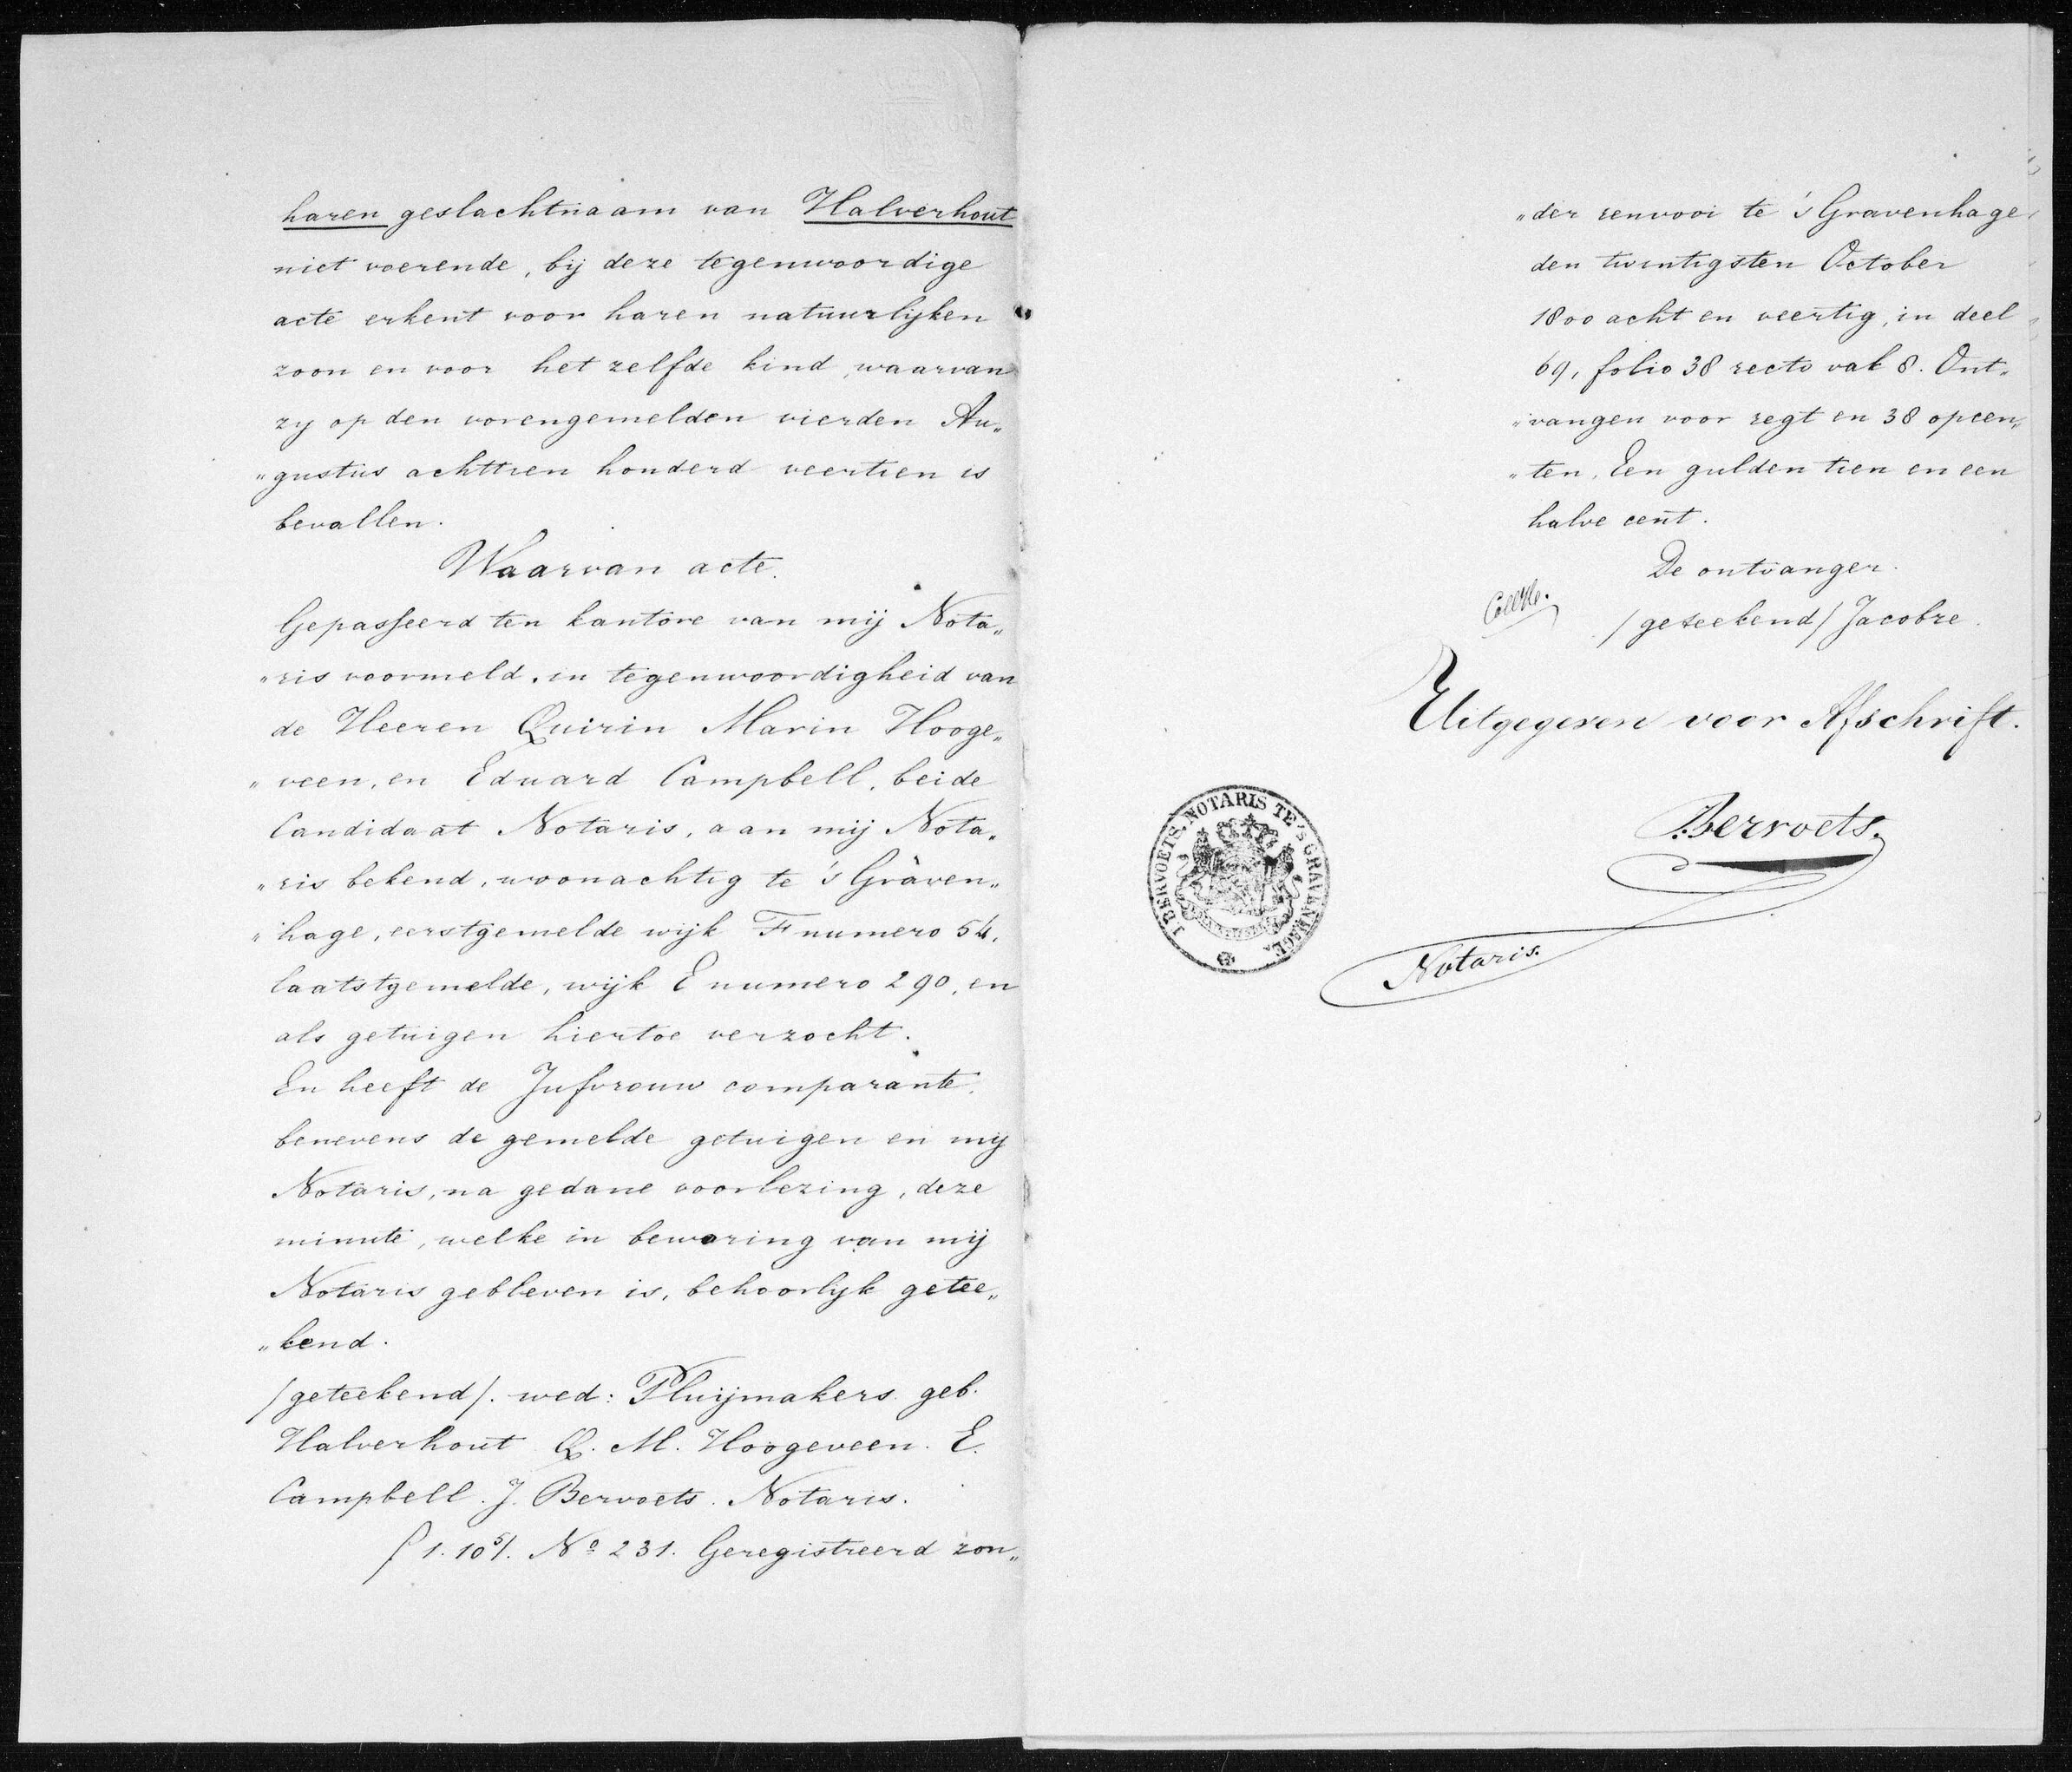 haren geslachtnaam van Halverhout
niet voerende, bij deze tegenwoordige
acte erkent voor haren natuurlijken
zoon en voor het zelfde kind, waarvan
zy op den vorengemelden vierden Au„
„gustus achttien honderd veertien is
bevallen.
Waarvan acte.
Gepasseerd ten kantore van mij Nota„
„ris voormeld, in tegenwoordigheid van
de Heeren Quirin Marin Hooge„
„veen, en Eduard Campbell, beide
Candidaat Notaris, aan mij Nota„
„ris bekend, woonachtig te 's Graven„
„hage, eerstgemelde wijk F numero 54,
laatstgemelde, wijk E numero 290, en
als getuigen hiertoe verzocht.
En heeft de Jufvrouw comparante,
benevens de gemelde getuigen en mij
Notaris, na gedane voorlezing, deze
minute, welke in bewaring van mij
Notaris gebleven is, behoorlijk getee„
„kend.
/geteekend/. wed: Pluijmakers geb.
Halverhout Q. M. Hoogeveen. E.
Campbell. J. Bervoets. Notaris.
f 1.10⁵/. Nº 231. Geregistreerd zon„
„der renvooi te 's Gravenhage
den twintigsten October
1800 acht en veertig, in deel
69, folio 38 recto vak 8. Ont„
„vangen voor regt en 38 opcen„
„ten, Een gulden tien en een
halve cent.
De ontvanger.
/geteekend/ Jacobze.
Uitgegeven voor Afschrift.
J. BERVOETS, NOTARIS TE 'S GRAVENHAGE.
Bervoets.
Notaris.